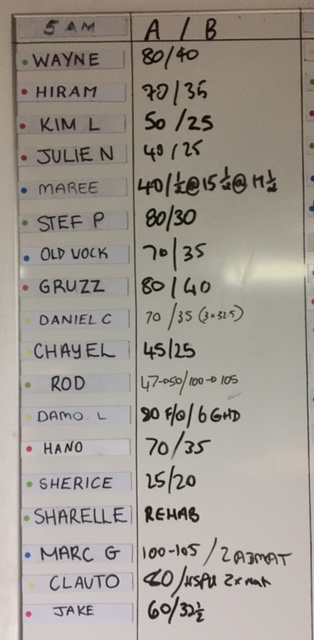 5 AM A / B
WAYNE 80/40
HIRAM 70/35
KIM L 50/25
JULIE N 40/25
MAREE 40/½@15 ½@ 17½
STEF P 80/30
OLD VOCK 70/35
GRUZZ 80/40
DANIEL C 70/35 (3x32.5)
CHAYEL 45/25
ROD 47→50/100→105
DAMO. L 80 F/Q/6 GHD
HANO 70/35
SHERICE 25/20
SHARELLE REHAB
MARC G 100-105/2 ABMAT
CLAUTO 60/HSPU 2xmat
JAKE 60/32½